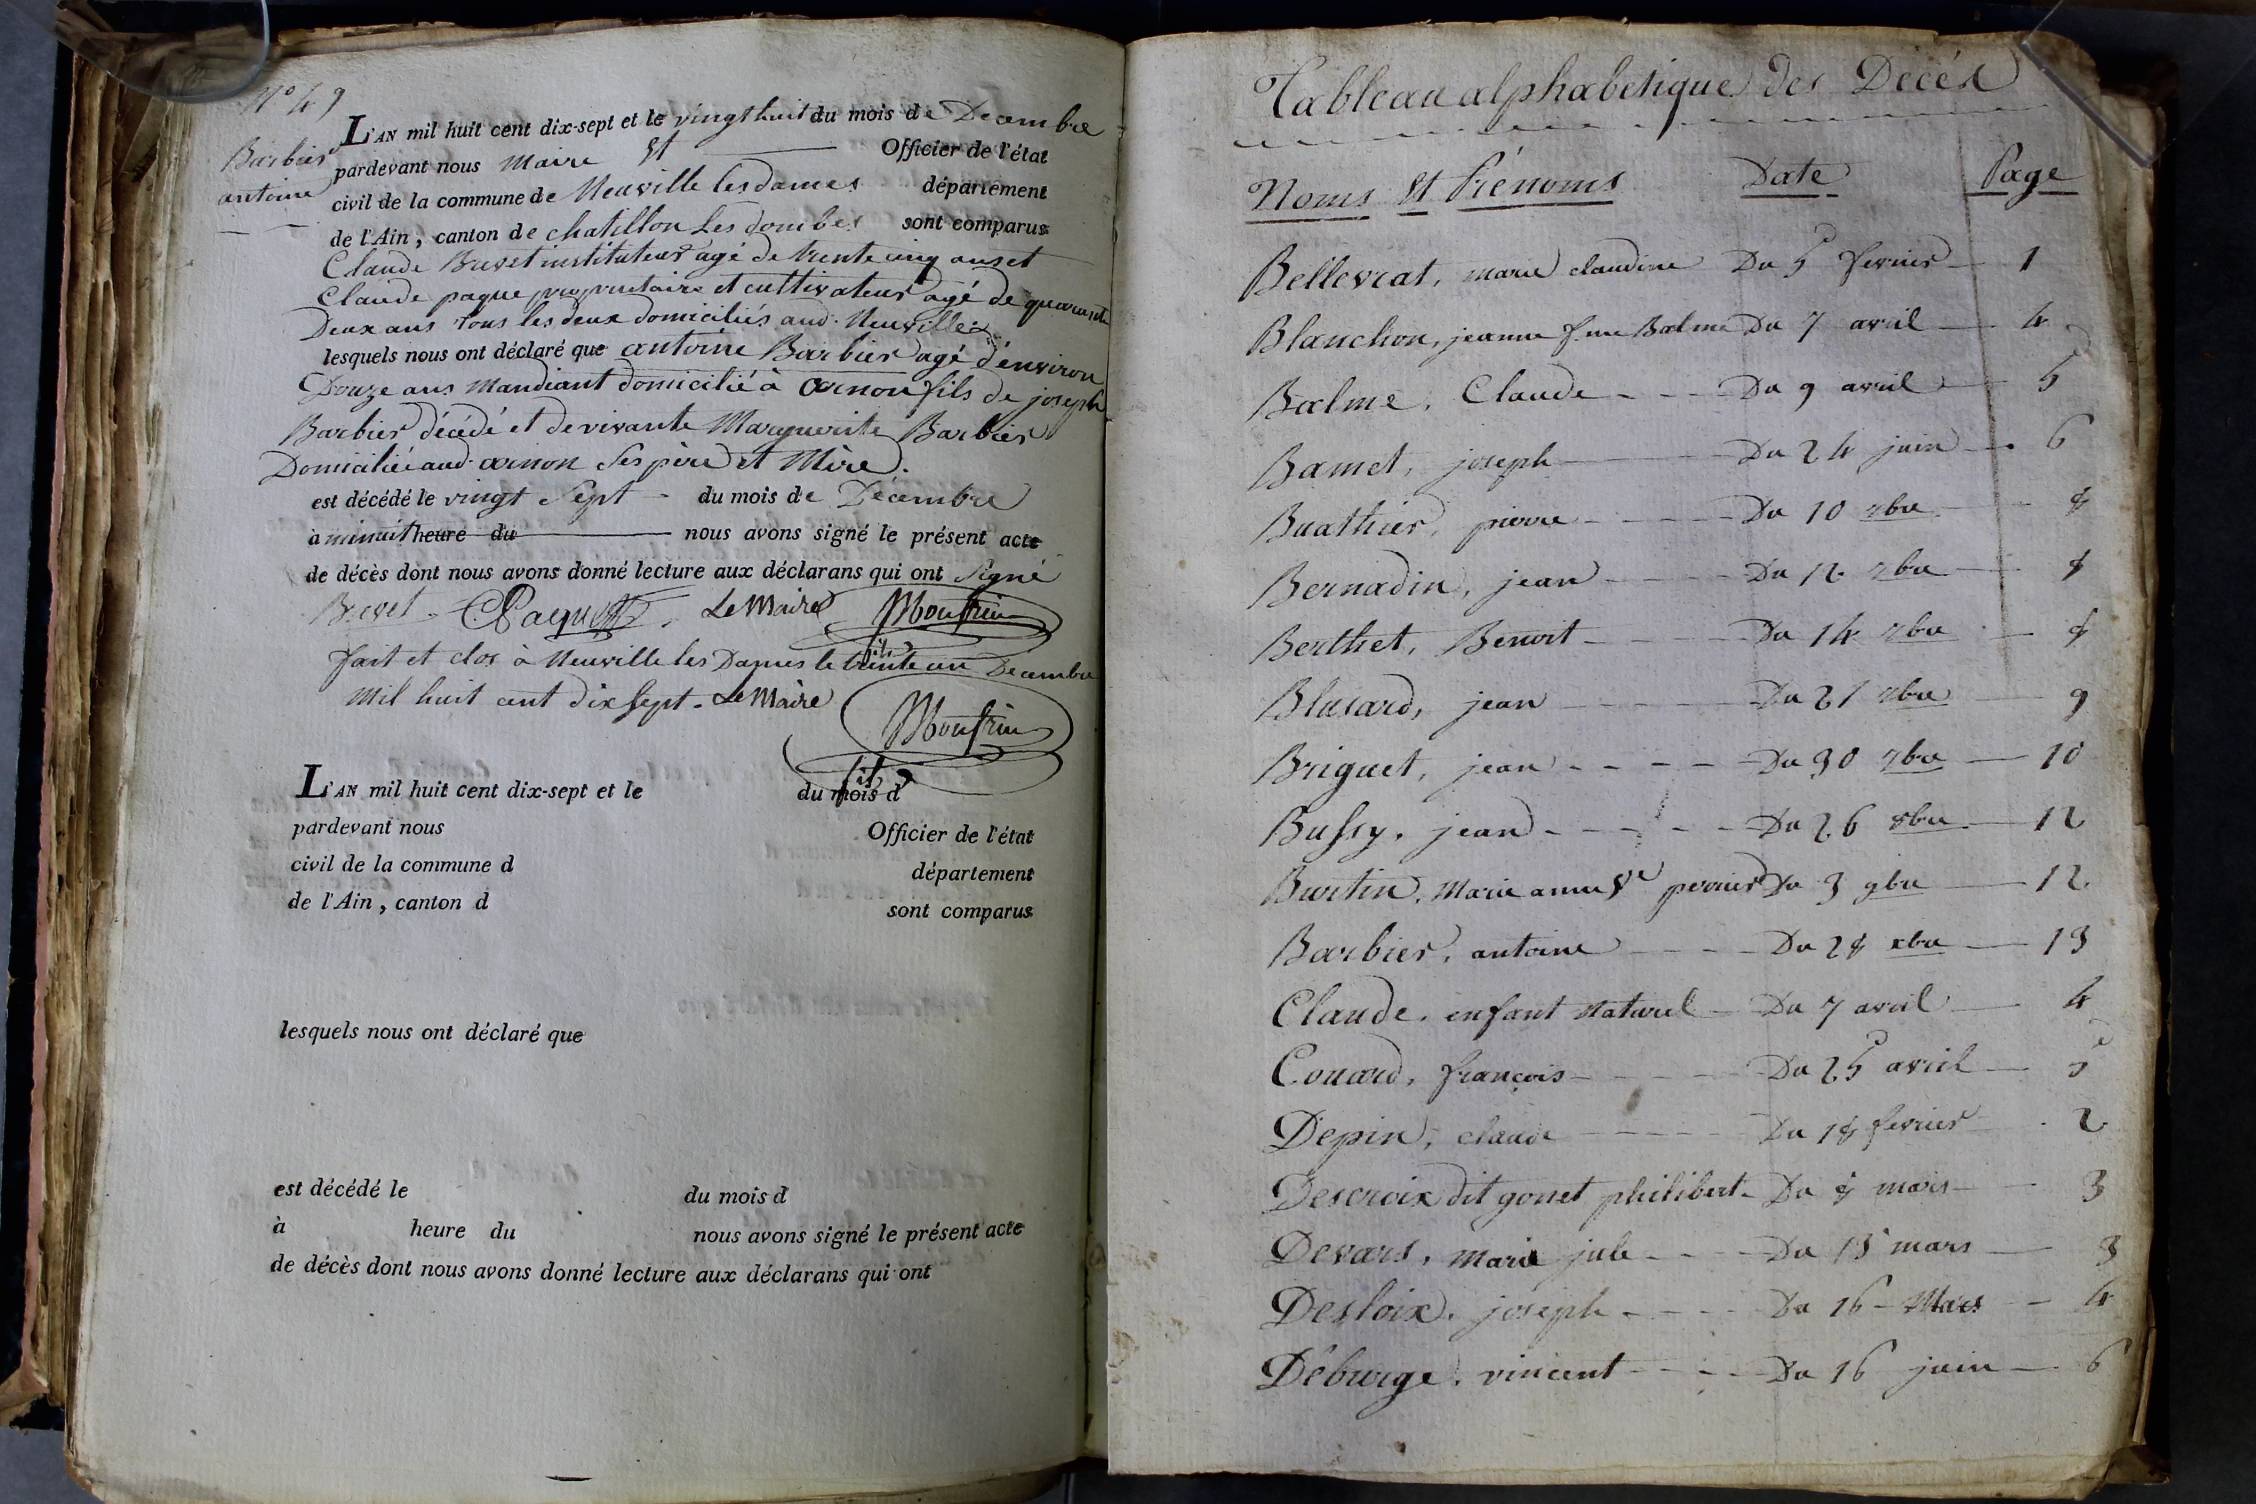 N° 49
Barbier
antoine
L'AN mil huit cent dix-sept et le vingt huit du mois de Decembre
pardevant nous Maire et Officier de l'état
civil de la commune de Neuville les dames département
de l'Ain, canton de chatillon Les dombes sont comparus
Claude Brevet instituteur agé de trente cinq ans et
Claude paque proprietaire et cultivateur agé de quarante
Deux ans tous les deux domiciliés aud. Neuville
lesquels nous ont déclaré que antoine Barbier agé d'environ
Douze ans Mandiant domicilié à fils de joseph
Barbier décédé et de vivante Marguerite Barbier
Domiciliée aud. Ses père et Mère.
est décédé le vingt Sept du mois de Décembre
à minuit heure du nous avons signé le présent acte
de décès dont nous avons donné lecture aux déclarans qui ont Signé
Brevet. CPaque Le Maire Monfrin
fils
fait et clos à Neuville les Dames le trente un Decembre
Mil huit cent dix Sept. Le Maire
Monfrin
fils
L'AN mil huit cent dix-sept et le du mois d
pardevant nous Officier de l'état
civil de la commune d département
de l'Ain, canton d sont comparus
lesquels nous ont déclaré que
est décédé le du mois d
à heure du nous avons signé le présent acte
de décès dont nous avons donné lecture aux déclarans qui ont
Tableau alphabetique des Décés
Noms et Prénoms Date Page
Bellevrat, marie claudine Du 5 fevrier 1
Blanchon, jeanne f.me Balme Du 7 avril 4
Balme, Claude Du 9 avril 5
Bamet, joseph Du 24 juin 6
Buathier, pierre Du 10 7bre 8
Bernadin, jean Du 12 7bre 8
Berthet, Benoit Du 14 7bre 8
Blusard, jean Du 21 7bre 9
Briguet, jean Du 30 7bre 10
Bussy, jean Du 26 8bre 12
Burtin, Marie anne Ve perrier Du 3 9bre 12
Barbier, antoine Du 28 xbre 13
Claude, enfant Naturel Du 7 avril 4
Couard, françois Du 25 avril 5
Depin, claude Du 18 fevrier 2
Descroix dit gonet philibert Du 8 mars 3
Devars, Marie jule Du 15 mars 3
Desloix, joseph Du 16 Mars 4
Déburge, vincent Du 16 juin 6